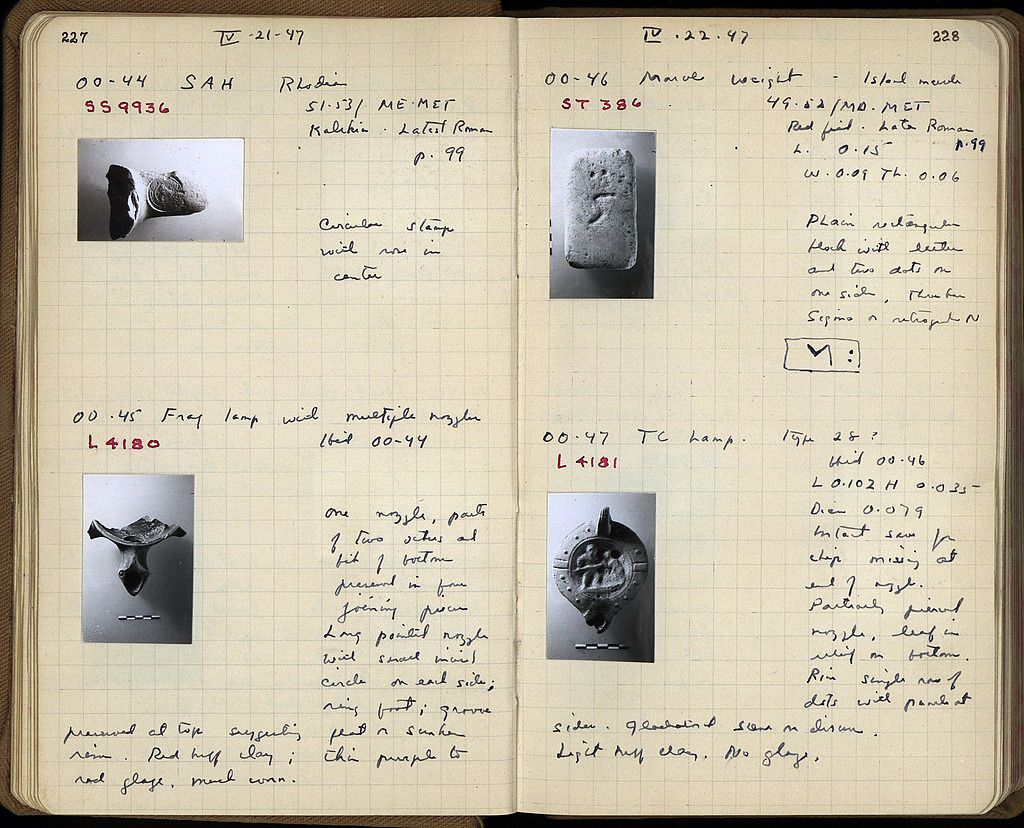 227
IV-21-47
OO-44 SAH Rhodian
SS 9936
51-53/ ME-MET
Latest Roman
p. 99
Circular stamp
with rose in
center
OO-45 Frag lamp with multiple nozzles
L 4180
Ibid OO-44
One nozzle, parts
of two others and
bit of bottom
preserved in four
joining pieces
Long pointed nozzle
with small incised
circle on each side;
ring foot; groove
preserved at top suggesting
rim. Red buff clay; thin purple to
red glaze, much worn.
IV-22-47
228
OO-46 Marble weight - Island marble
ST 386
49-52/MD-MET
Red fill. Late Roman
p. 99
L. 0.15
W. 0.09 Th. 0.06
Plain rectangular
block with letter
and two dots on
one side,
Sigma or retrograde N
OO-47 TC Lamp. Type 28?
L 4181
Ibid OO-46
L 0.102 H 0.035
Diam 0.079
Intact save for
chip missing at
end of nozzle.
Partially pierced
nozzle, leaf in
relief on bottom.
Rim single row of
dots with panels at
sides. Gladiatorial scene on discus.
Light buff clay. No glaze.